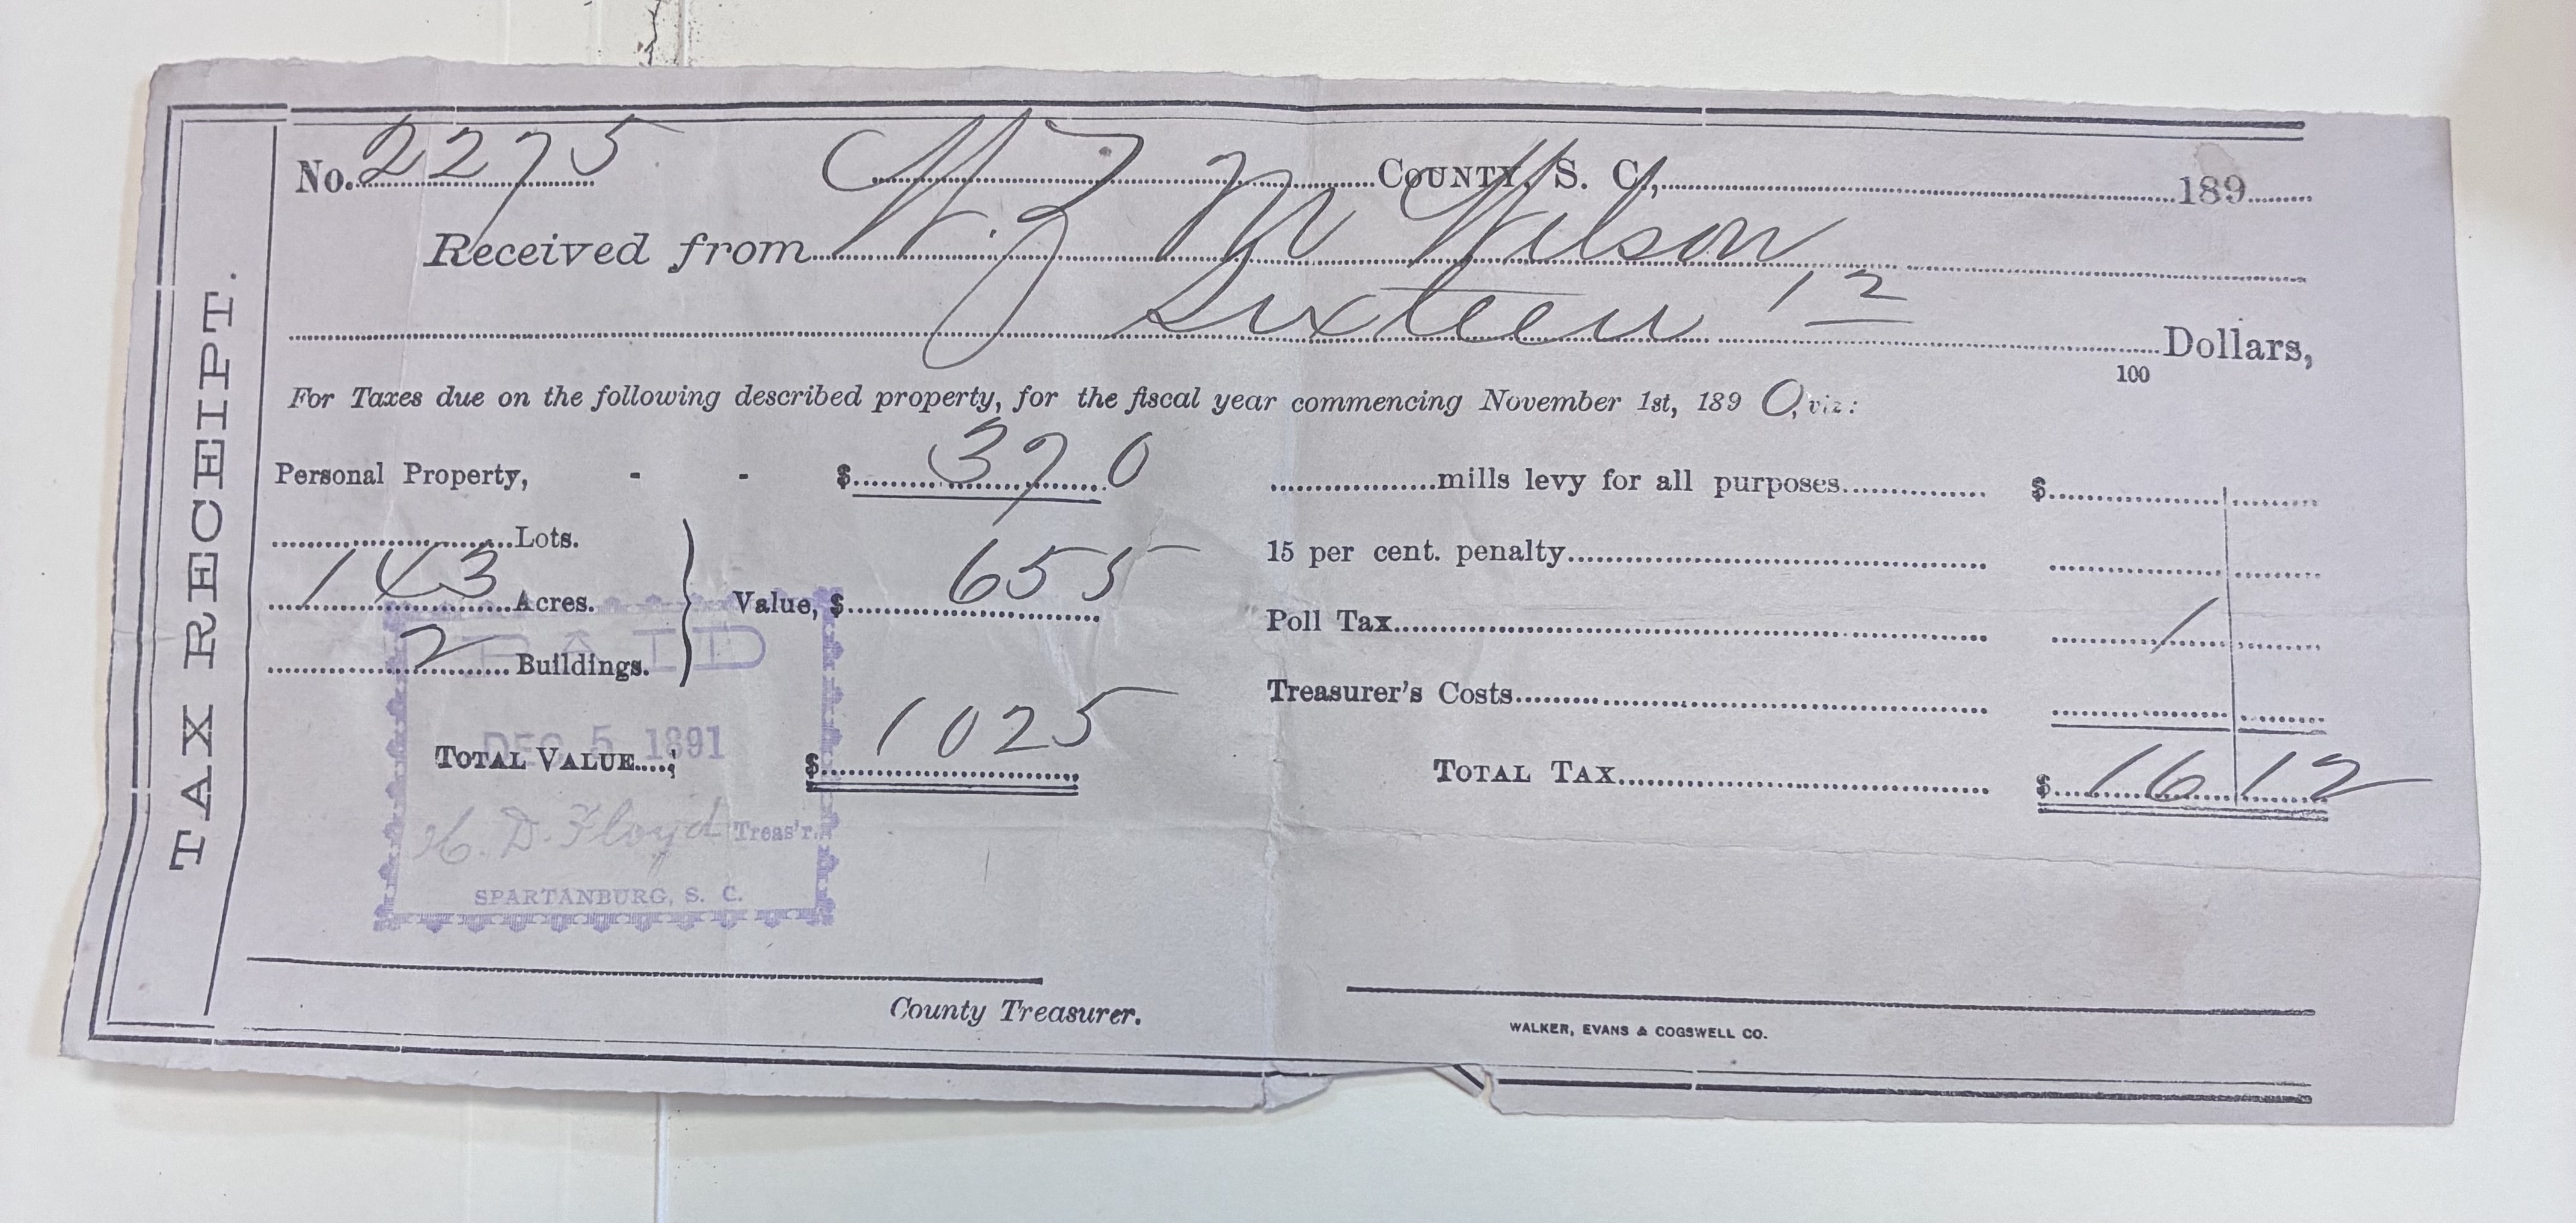 TAX RECEIPT.
No. 2275 COUNTY, S. C., 189
Received from W. J. M Wilson
Sixteen 12/100 Dollars,
For Taxes due on the following described property, for the fiscal year commencing November 1st, 1890, viz:
Personal Property, - - $ 370
Lots.
143 Acres. Value, $ 655
2 Buildings.
TOTAL VALUE....; $ 1025
mills levy for all purposes $
15 per cent. penalty
Poll Tax 1
Treasurer's Costs
TOTAL TAX $ 16 12
PAID
DEC 5 1891
H. D. Floyd Treas'r.
SPARTANBURG, S. C.
County Treasurer.
WALKER, EVANS & COGSWELL CO.